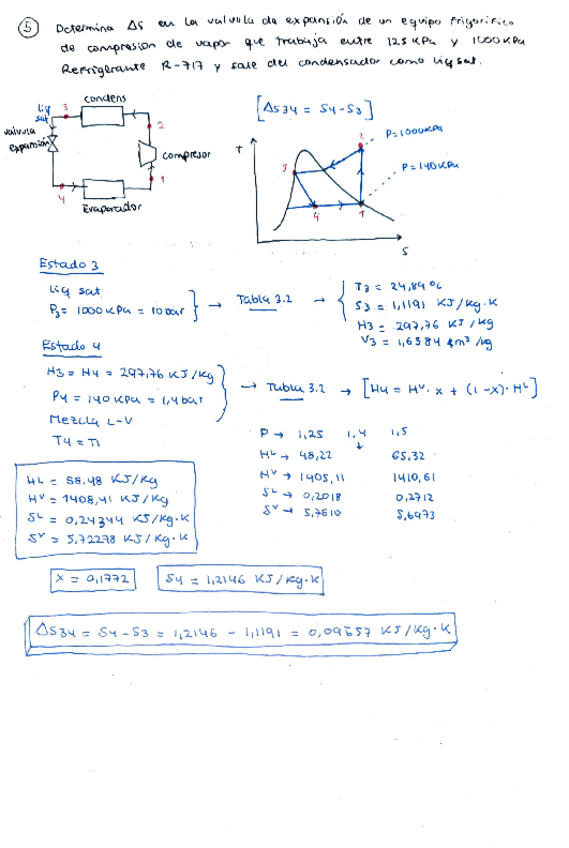 5 Determina Δs en la valvula de expansión de un equipo frigorifico
de compresion de vapor que trabaja entre 125 kPa y 1000 kPa
Refrigerante R-717 y sale del condensador como liq sat.
[Δs34 = s4 - s3]
condens
Liq
sat
3
2
valvula
expansión
compresor
4
1
Evaporador
T
P = 1000 kPa
P = 140 kPa
3
2
4
1
s
Estado 3
Liq sat
P3 = 1000 kPa = 10 bar
→ Tabla 3.2 →
T3 = 24,89 ºC
S3 = 1,1191 KJ/kg·K
H3 = 297,76 KJ/kg
V3 = 1,6584 dm³/kg
Estado 4
H3 = H4 = 297,76 KJ/kg
P4 = 140 kPa = 1,4 bar
Mezcla L-V
T4 = T1
→ Tabla 3.2 → [H4 = Hᵛ · x + (1-x) · Hᴸ]
P → 1,25 1,4 1,5
Hᴸ → 48,22 ↓ 65,32
Hᵛ → 1405,11 1410,61
Sᴸ → 0,2018 0,2712
Sᵛ → 5,7610 5,6973
HL = 58,48 KJ/Kg
Hᵛ = 1408,41 KJ/Kg
Sᴸ = 0,24344 KJ/Kg·K
Sᵛ = 5,72278 KJ/Kg·K
x = 0,1772
S4 = 1,2146 KJ/Kg·K
Δs34 = s4 - s3 = 1,2146 - 1,1191 = 0,09557 KJ/Kg·K